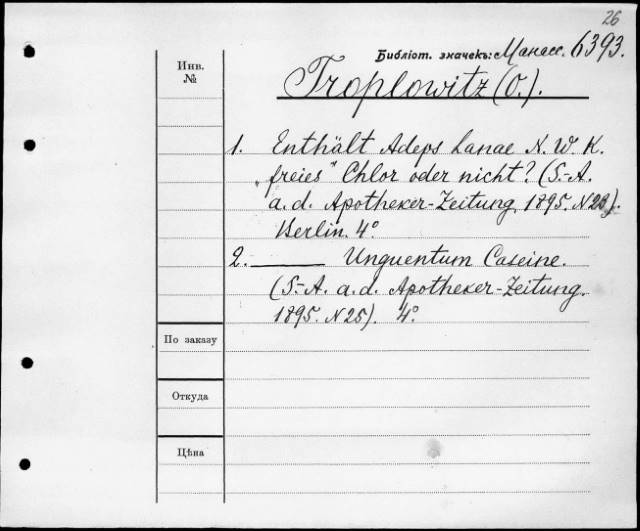 26
Библіот. значекъ: Манас. 6393.
Инв.
№
Troplowitz (O.).
1. Enthält Adeps Lanae N. W. K.
„freies" Chlor oder nicht? (S.-A.
a. d. Apotheker-Zeitung 1895. N 28).
Berlin. 4°
2. ——— Unguentum Caseine.
(S.-A. a. d. Apotheker-Zeitung.
1895. N 25). 4°.
По заказу
Откуда
Цѣна